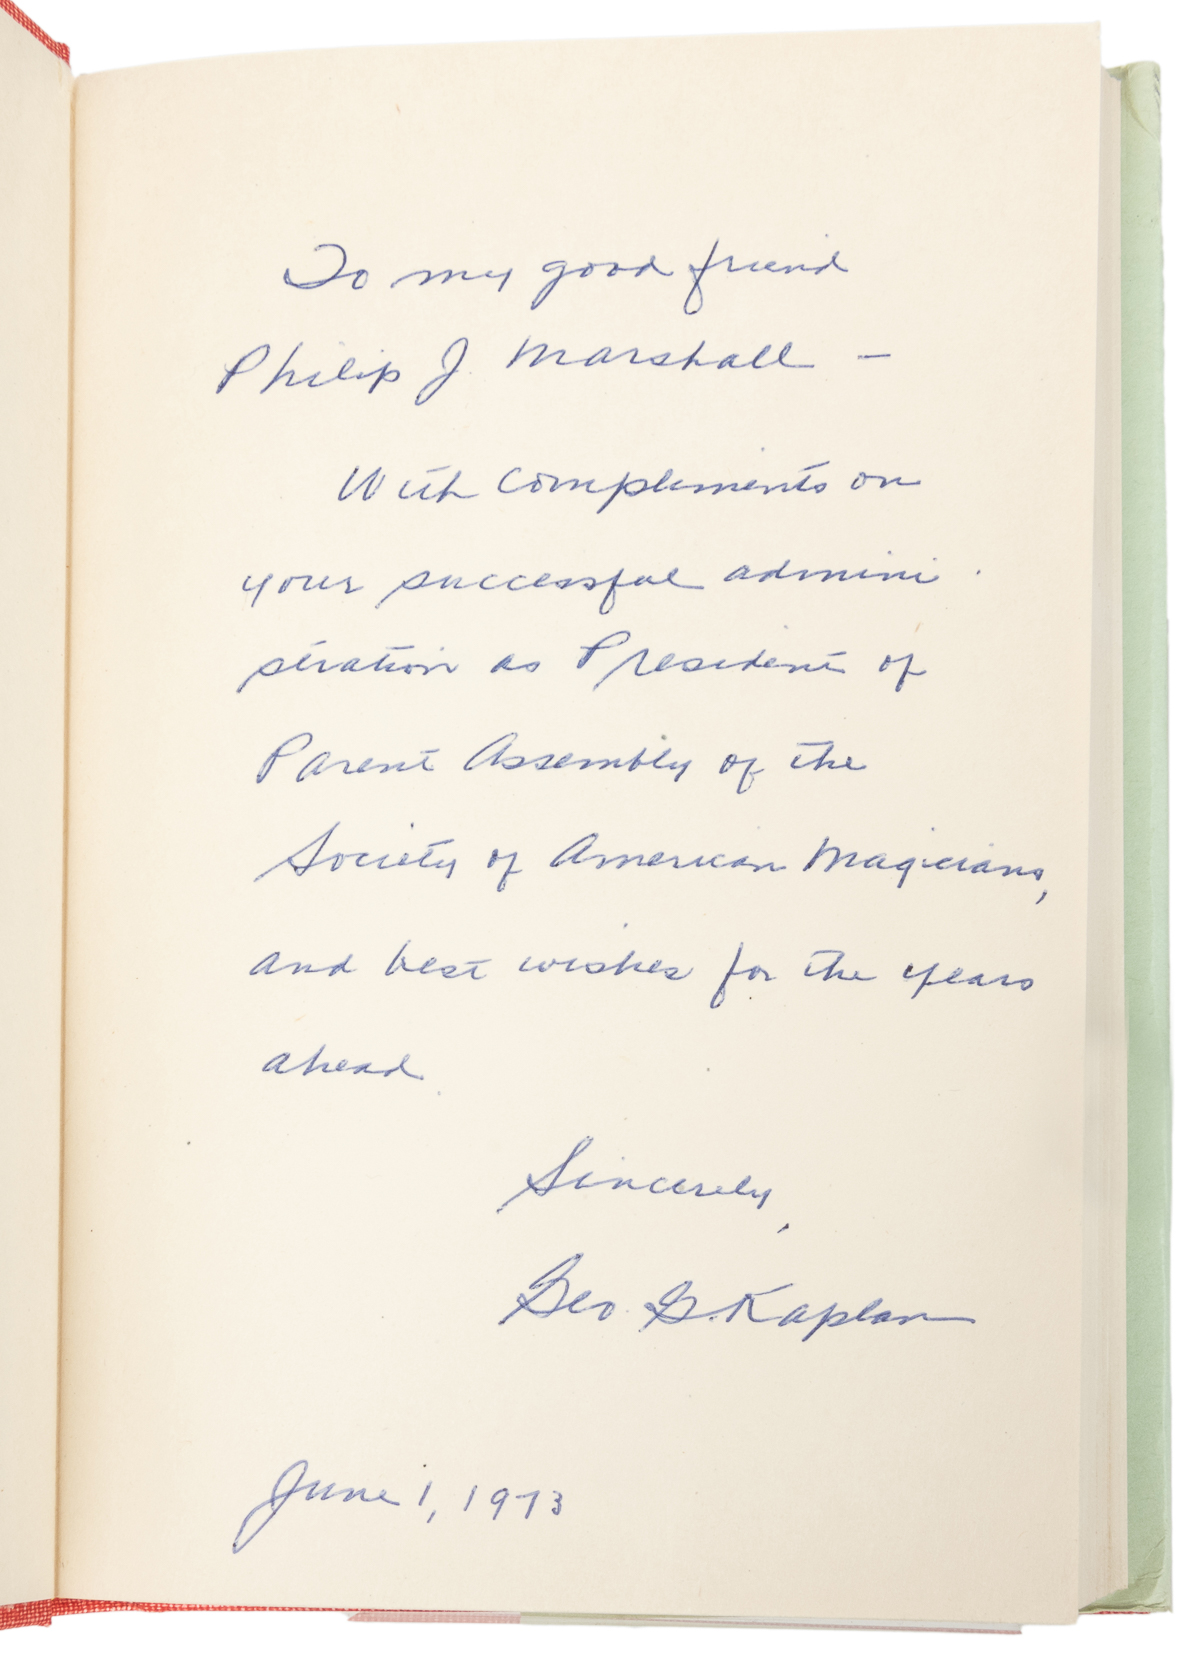 To my good friend
Philip J. Marshall —
With compliments on
your successful admini-
stration as President of
Parent Assembly of the
Society of American Magicians,
and best wishes for the years
ahead.
Sincerely,
Geo. G. Kaplan
June 1, 1973